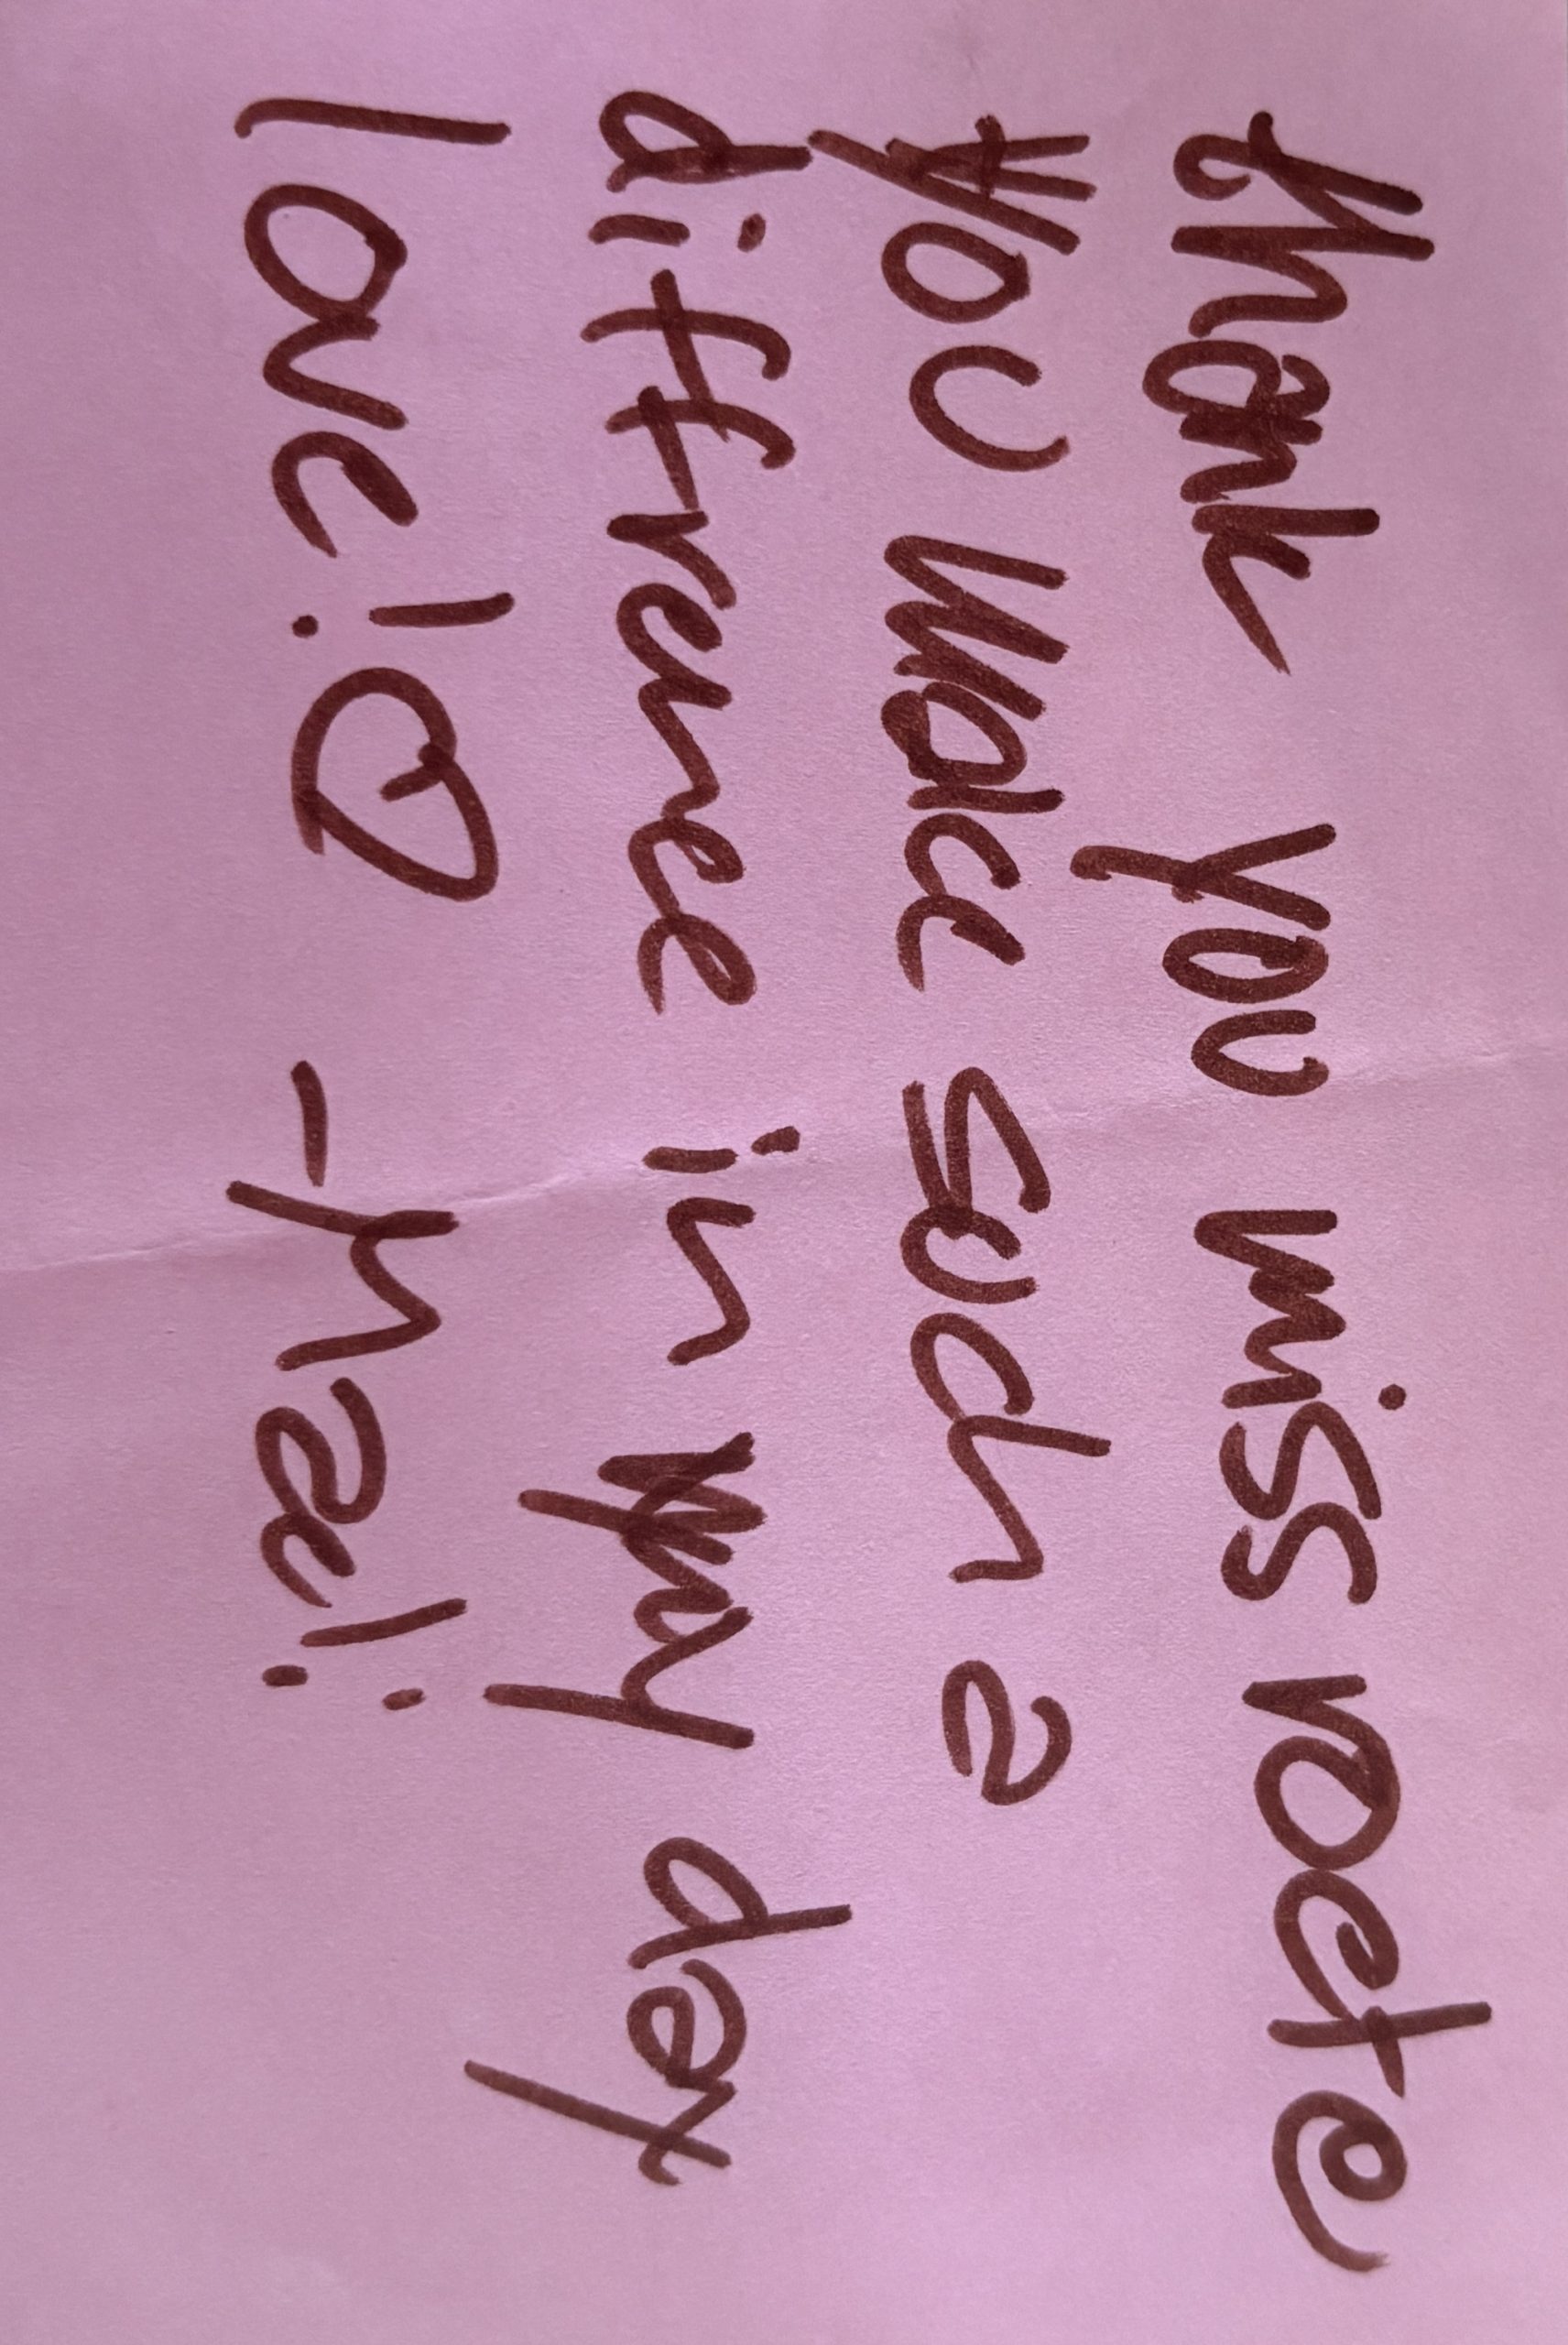 thank you miss roete
you make such a
diffrence in my day
love! ♡ -hzel!